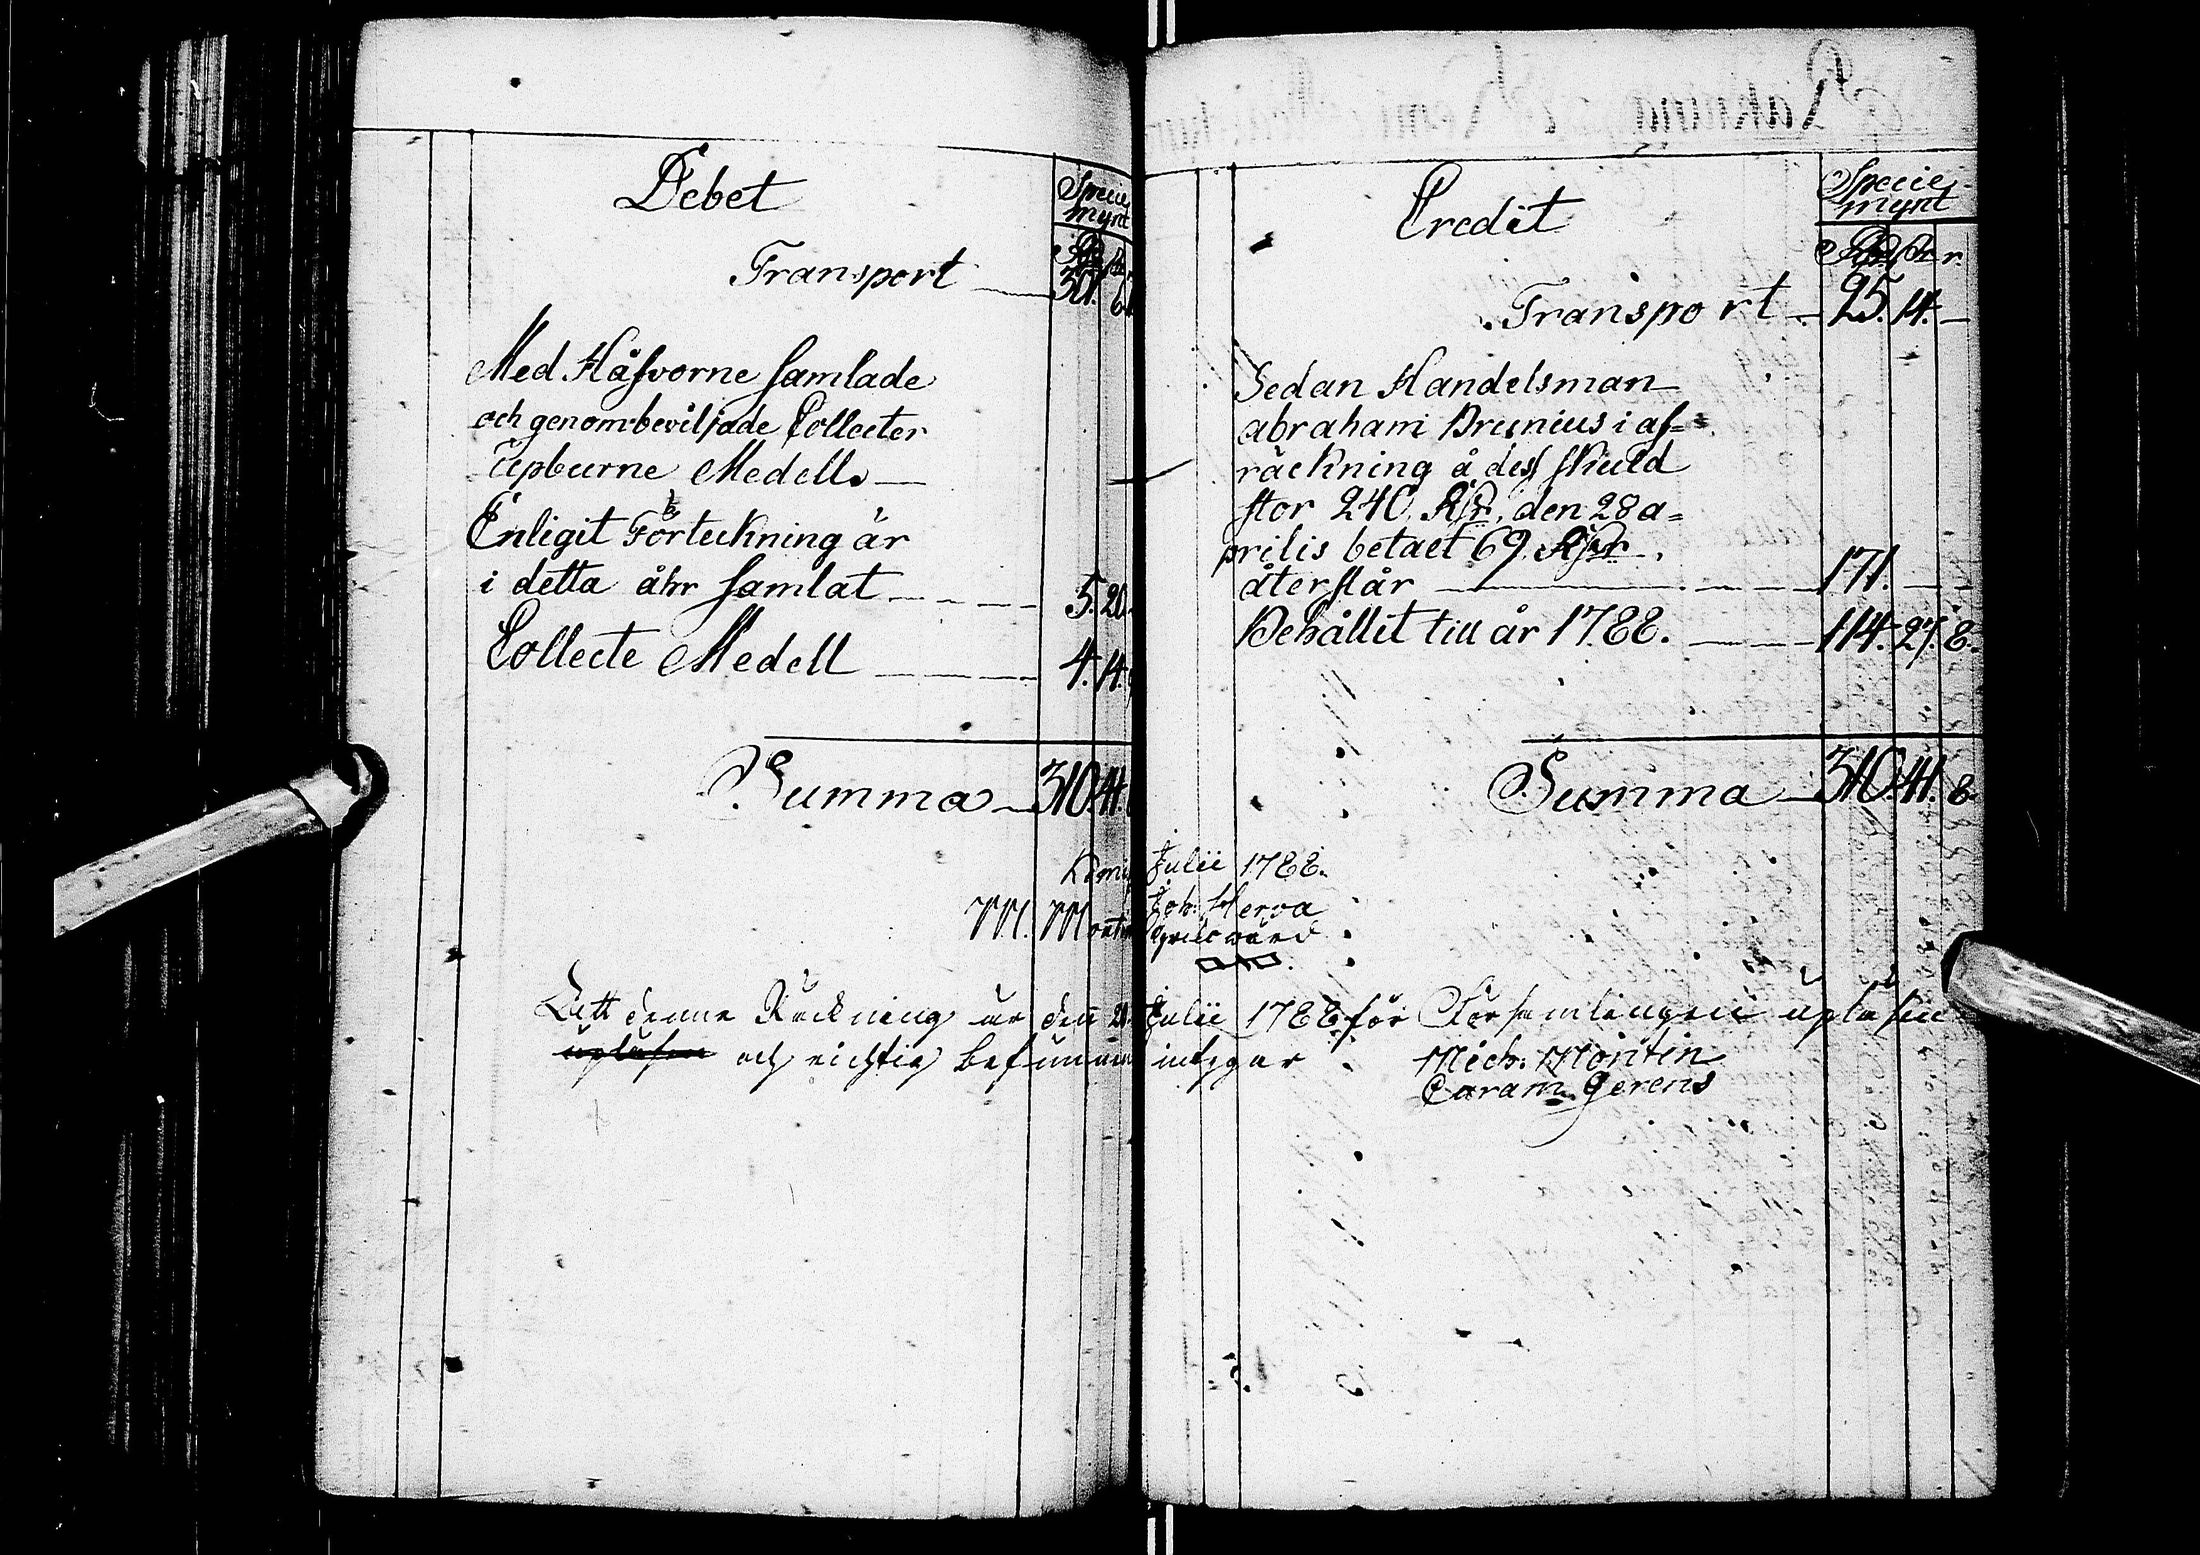 Debet
Specie
mynt
Transport
Med Håfvorne samlade
och genom beviljade Collecter
upburne Medell.
Enligit Förteckning är
i detta åhr samlat 5. 20.
Collecte Medell 4. 14.
Summa 310 41
M. Montin
Credit
Specie
mynt
Transport 25. 14. —
Sedan Handelsman
abraham Brunius i af=
räckning å dess skuld
stor 240. Rdr. den 28 a=
prilis betalt 69. Rdr.
återstår 171. —
Behållit till år 1788. 114. 27. 8.
Summa 310. 41. 8.
Julii 1788.
Joh. Herva
Att denne Räckning är den Julii 1788 för Församlingen upläsen
upläsen och richtig befunnen intygar Mich. Montin
Curam Gerens